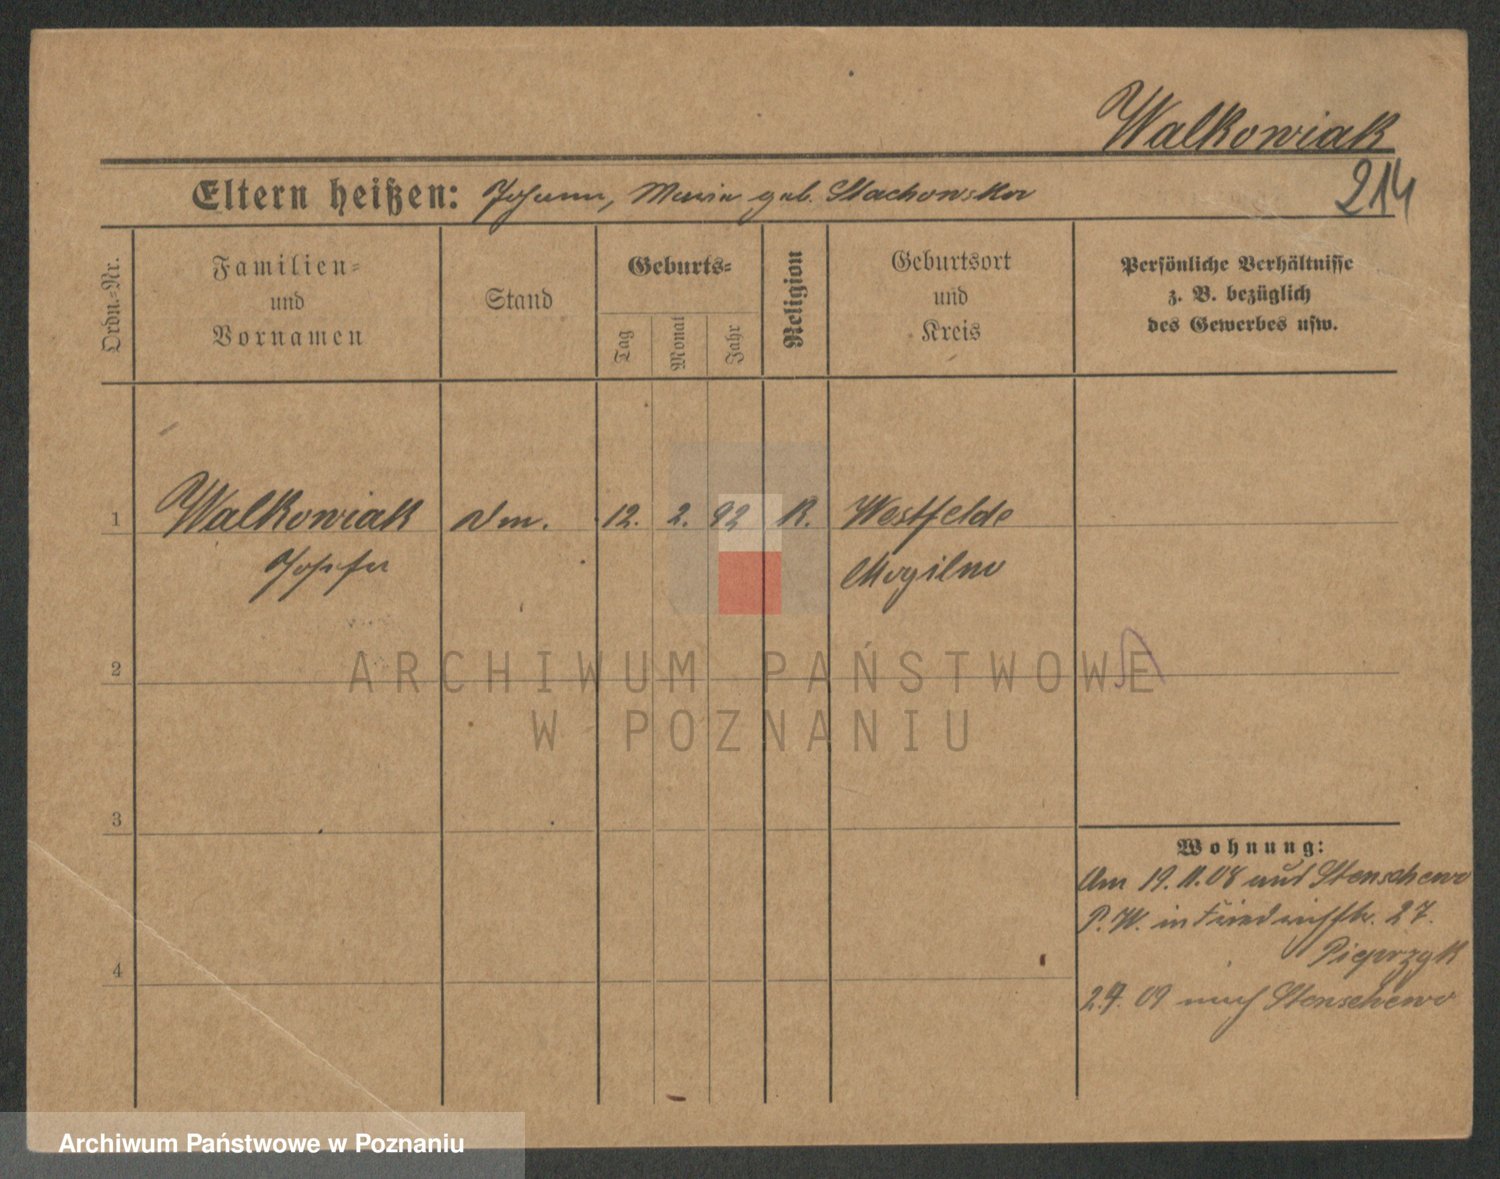 Walkowiak
214
Eltern heißen: Johann, Maria geb. Stachowska
Ordn.-Nr.
Familien-
und
Vornamen
Stand
Geburts-
Tag
Monat
Jahr
Religion
Geburtsort
und
Kreis
Persönliche Verhältnisse
z. B. bezüglich
des Gewerbes usw.
1 Walkowiak 12. 2. 92 K. Westfelde
Josefa Mogilno
2
ARCHIWUM PAŃSTWOWE
W POZNANIU
3
Wohnung:
Am 19.11.08 aus Stenschewo
P. W. in Friedrichstr. 27.
Pieprzyk
4
09 nach Stenschewo
Archiwum Państwowe w Poznaniu